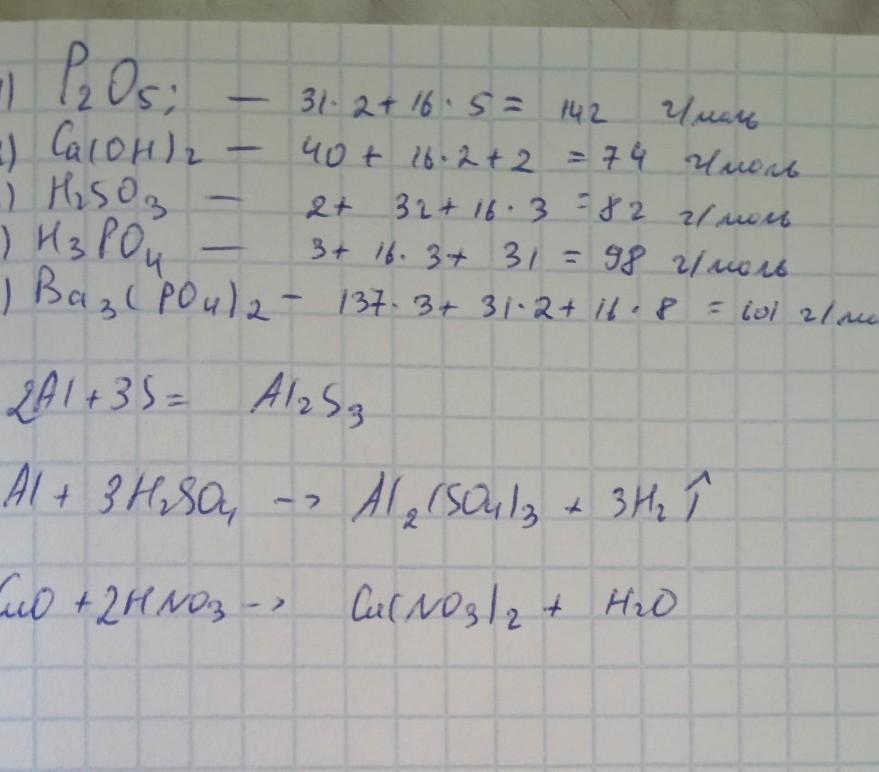 ) P₂O₅; — 31·2+16·5= 142 г/моль
) Ca(OH)₂ — 40 + 16·2+2 = 74 г/моль
) H₂SO₃ — 2+ 32+16·3 =82 г/моль
) H₃PO₄ — 3+ 16·3+ 31 = 98 г/моль
) Ba₃(PO₄)₂ - 137·3+ 31·2+ 16·8 = 601 г/мо
2Al+3S= Al₂S₃
Al + 3H₂SO₄ -> Al₂(SO₄)₃ + 3H₂↑
CuO +2HNO₃ -> Cu(NO₃)₂ + H₂O